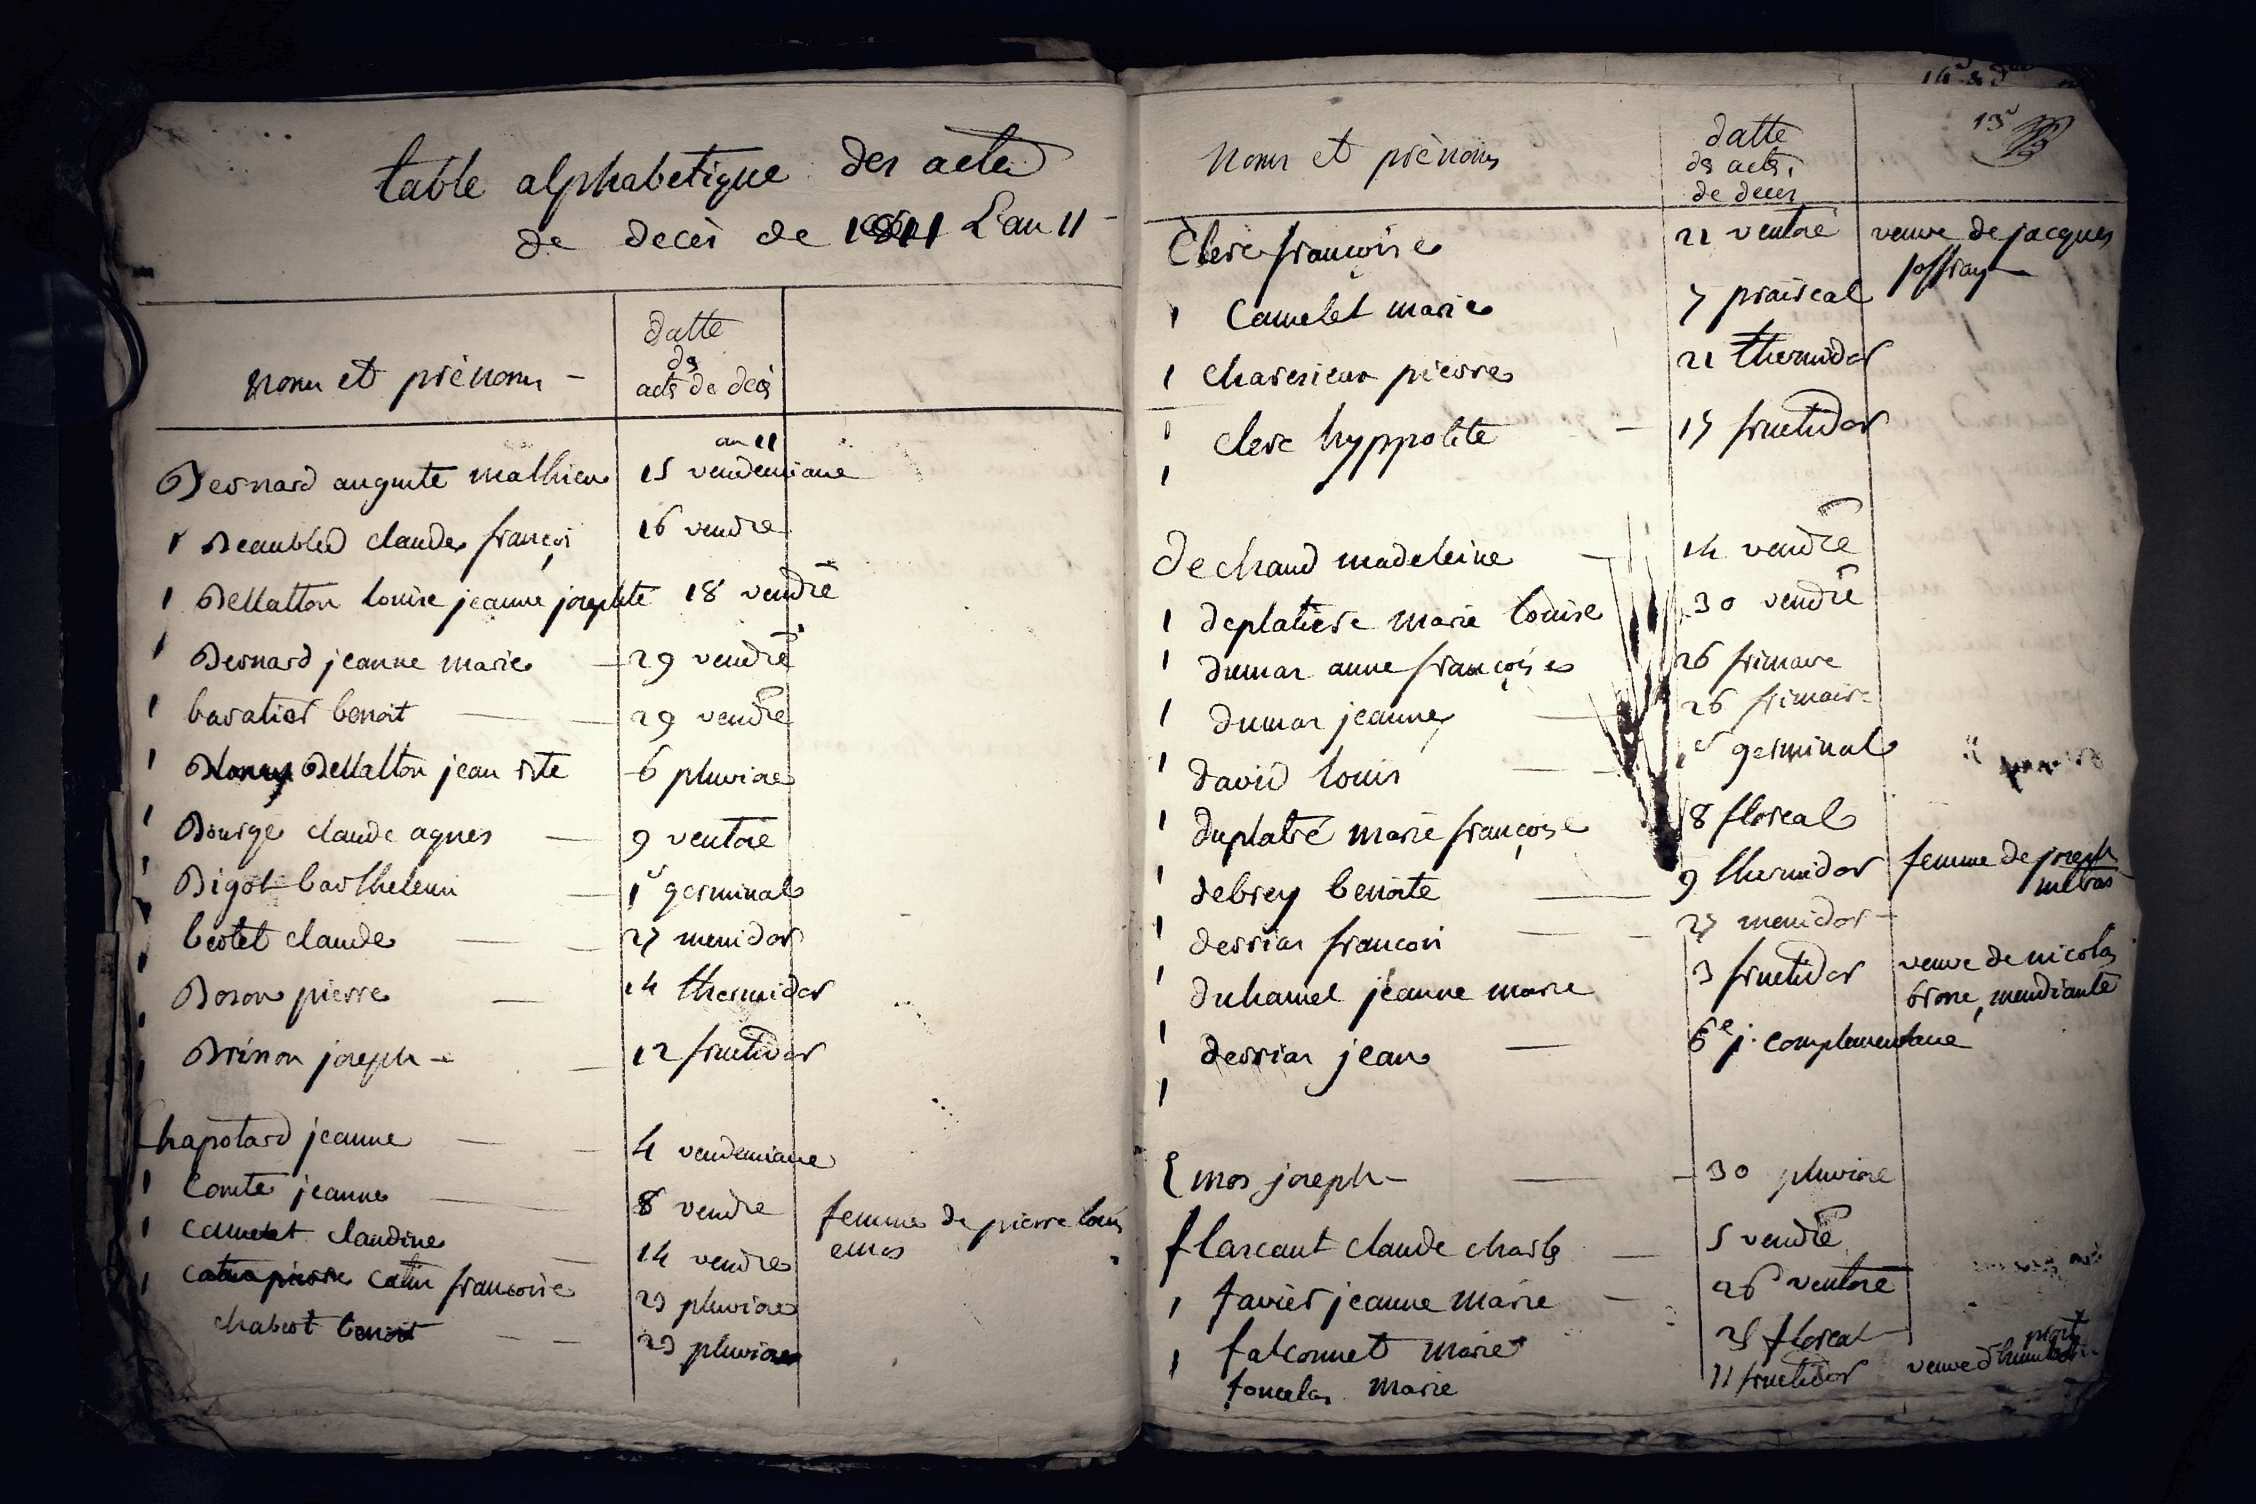 table alphabetique des actes
de decès de L'an 11
noms et prénoms
datte
des
acts de decès
an 11
Bernard auguste mathieu 15 vendemiaire
Beaubled claude françois 16 vendre
Bellatton louise jeanne josephte 18 vendre
Bernard jeanne marie 29 vendre
baratier benoit 29 vendre
Bellatton jean bte 6 pluviose
Bourge claude agnes 9 ventose
Bigot barthelemi 1er germinal
bertet claude 27 messidor
Boson pierre 14 thermidor
Brison joseph 12 fructidor
Chapotard jeanne 4 vendemiaire
Comte jeanne 8 vendre
camelet claudine 14 vendre femme de pierre louis
emos
catin françoise 23 pluviose
chabert benoit 23 pluviose
noms et prénoms
datte
des actes
de deces
13
Clerc françoise 21 ventose veuve de jacques
joffray
Camelet marie 7 prairéal
charerieux pierre 21 thermidor
clerc hyppolite 17 fructidor
dechaud madeleine 14 vendre
deplatiere marie louise 30 vendre
dumas anne françoise 26 frimaire
dumas jeanne 26 frimaire
david louis 1er germinal
duplatre marie françoise 8 floreal
debrey benoite 9 thermidor femme de joseph
metras
derrias francois 27 messidor
duhamel jeanne marie 3 fructidor veuve de nicolas
brosse, mendiante
derrias jean 6e j. complementaire
Emos joseph 30 pluviose
flascaut claude charles 5 vendre
favier jeanne marie 26 ventose
falconnet marie 25 floreal
marie 11 fructidor veuve d'humbert